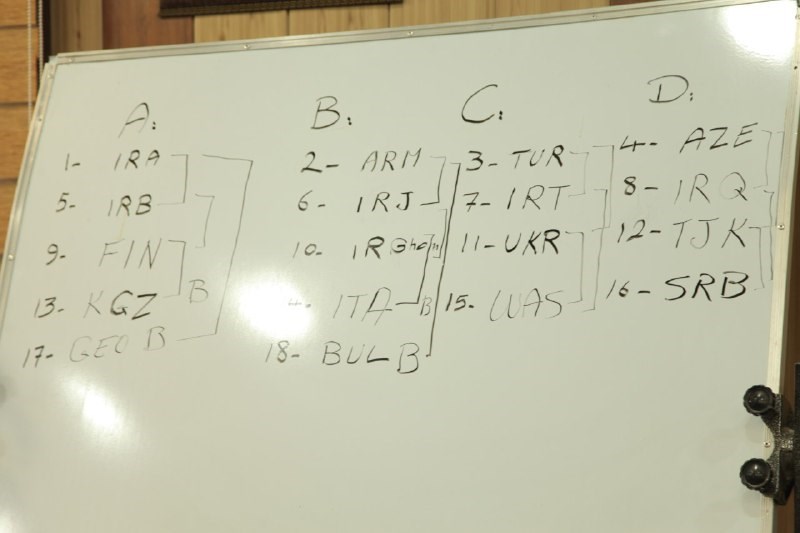 A: B: C: D:
1- IRA 2- ARM 3- TUR 4- AZE
5- IRB 6- IRJ 7- IRT 8- IRQ
9- FIN 10- IR 11- UKR 12- TJK
13- KGZ B ITA B 15- 16- SRB
17- GEO B 18- BUL B